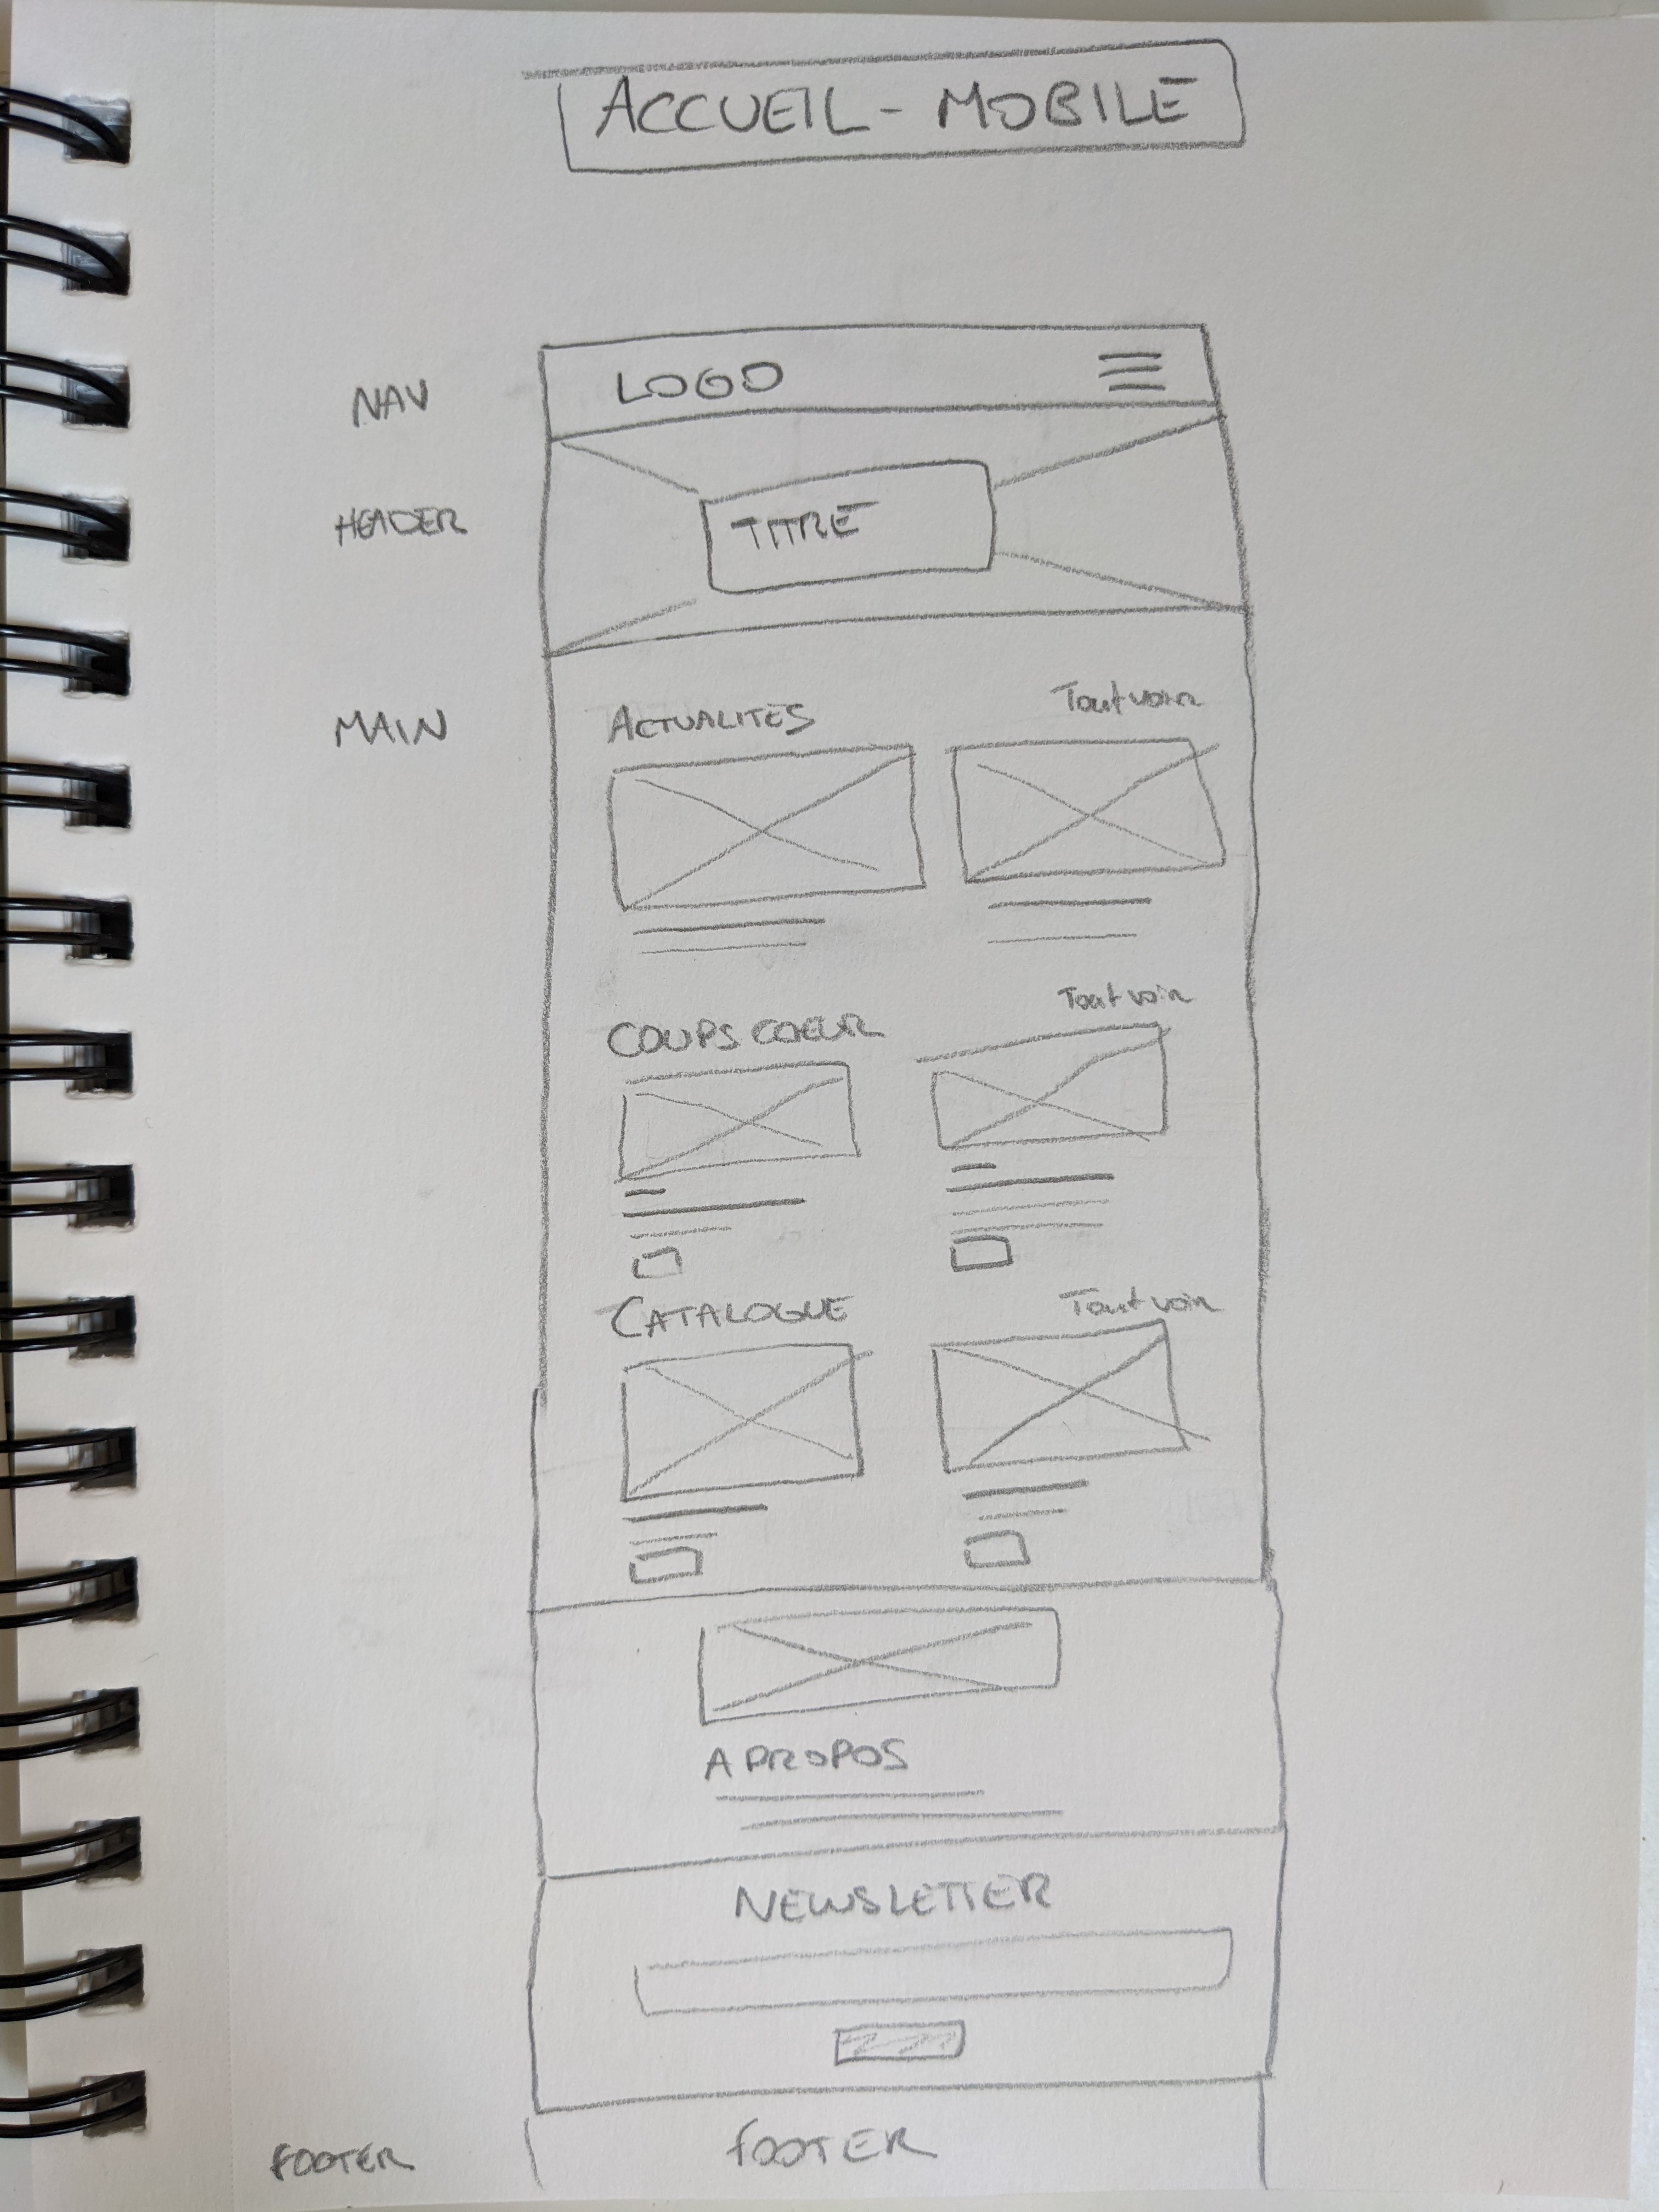 ACCUEIL - MOBILE
NAV
LOGO
HEADER
TITRE
MAIN
ACTUALITES
Tout voir
COUPS COEUR
Tout voir
CATALOGUE
Tout voir
A PROPOS
NEWSLETTER
FOOTER
FOOTER